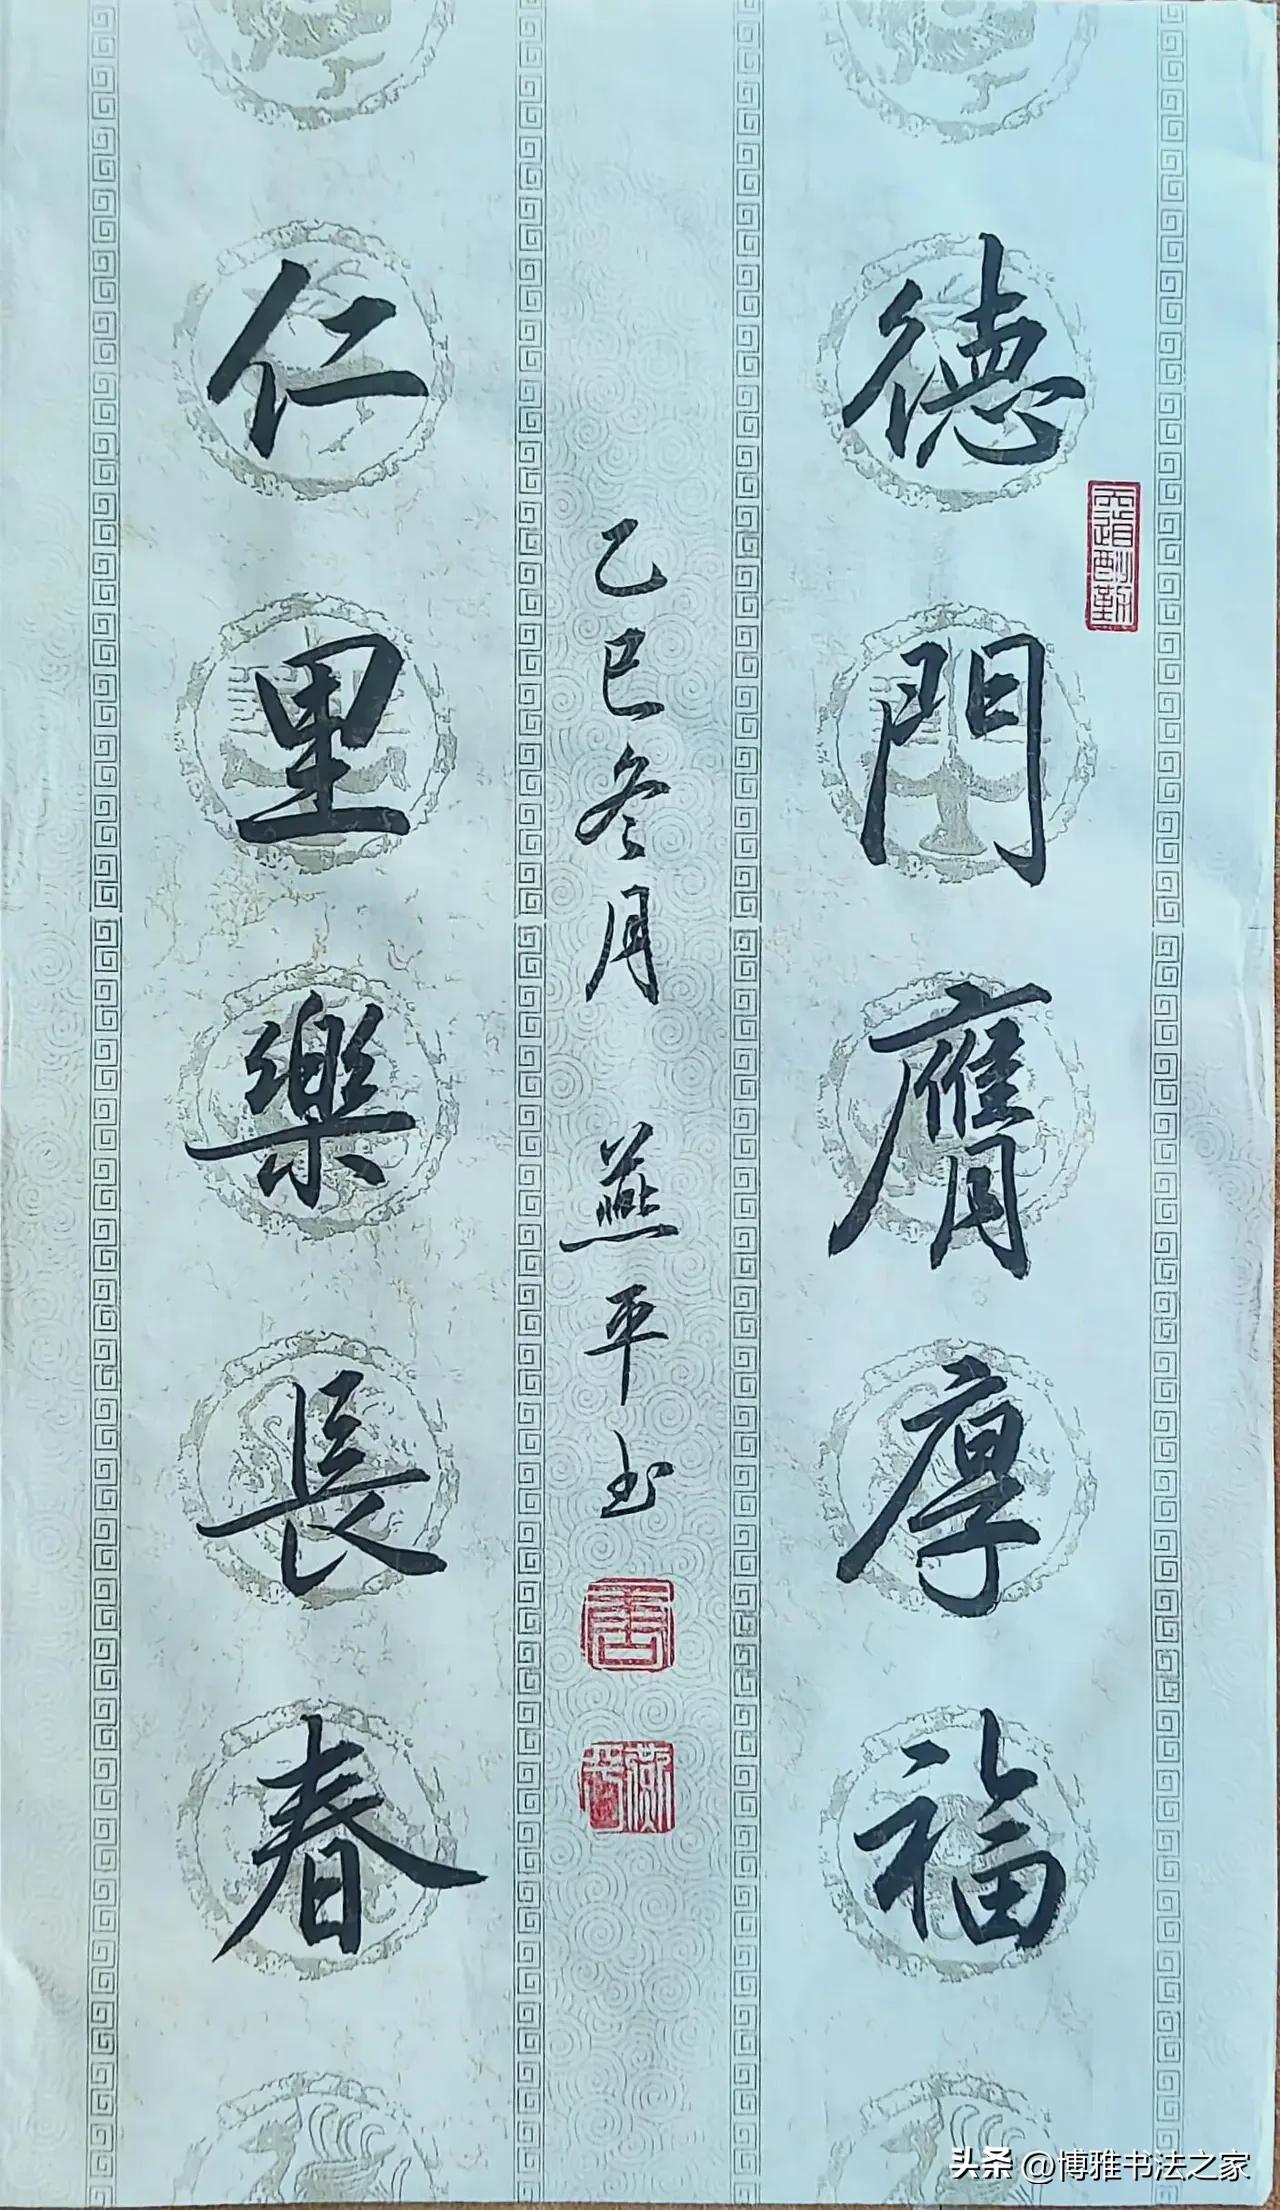 德門膺厚福
仁里樂長春
乙巳冬月 燕平书
天道酬勤
头条 @博雅书法之家